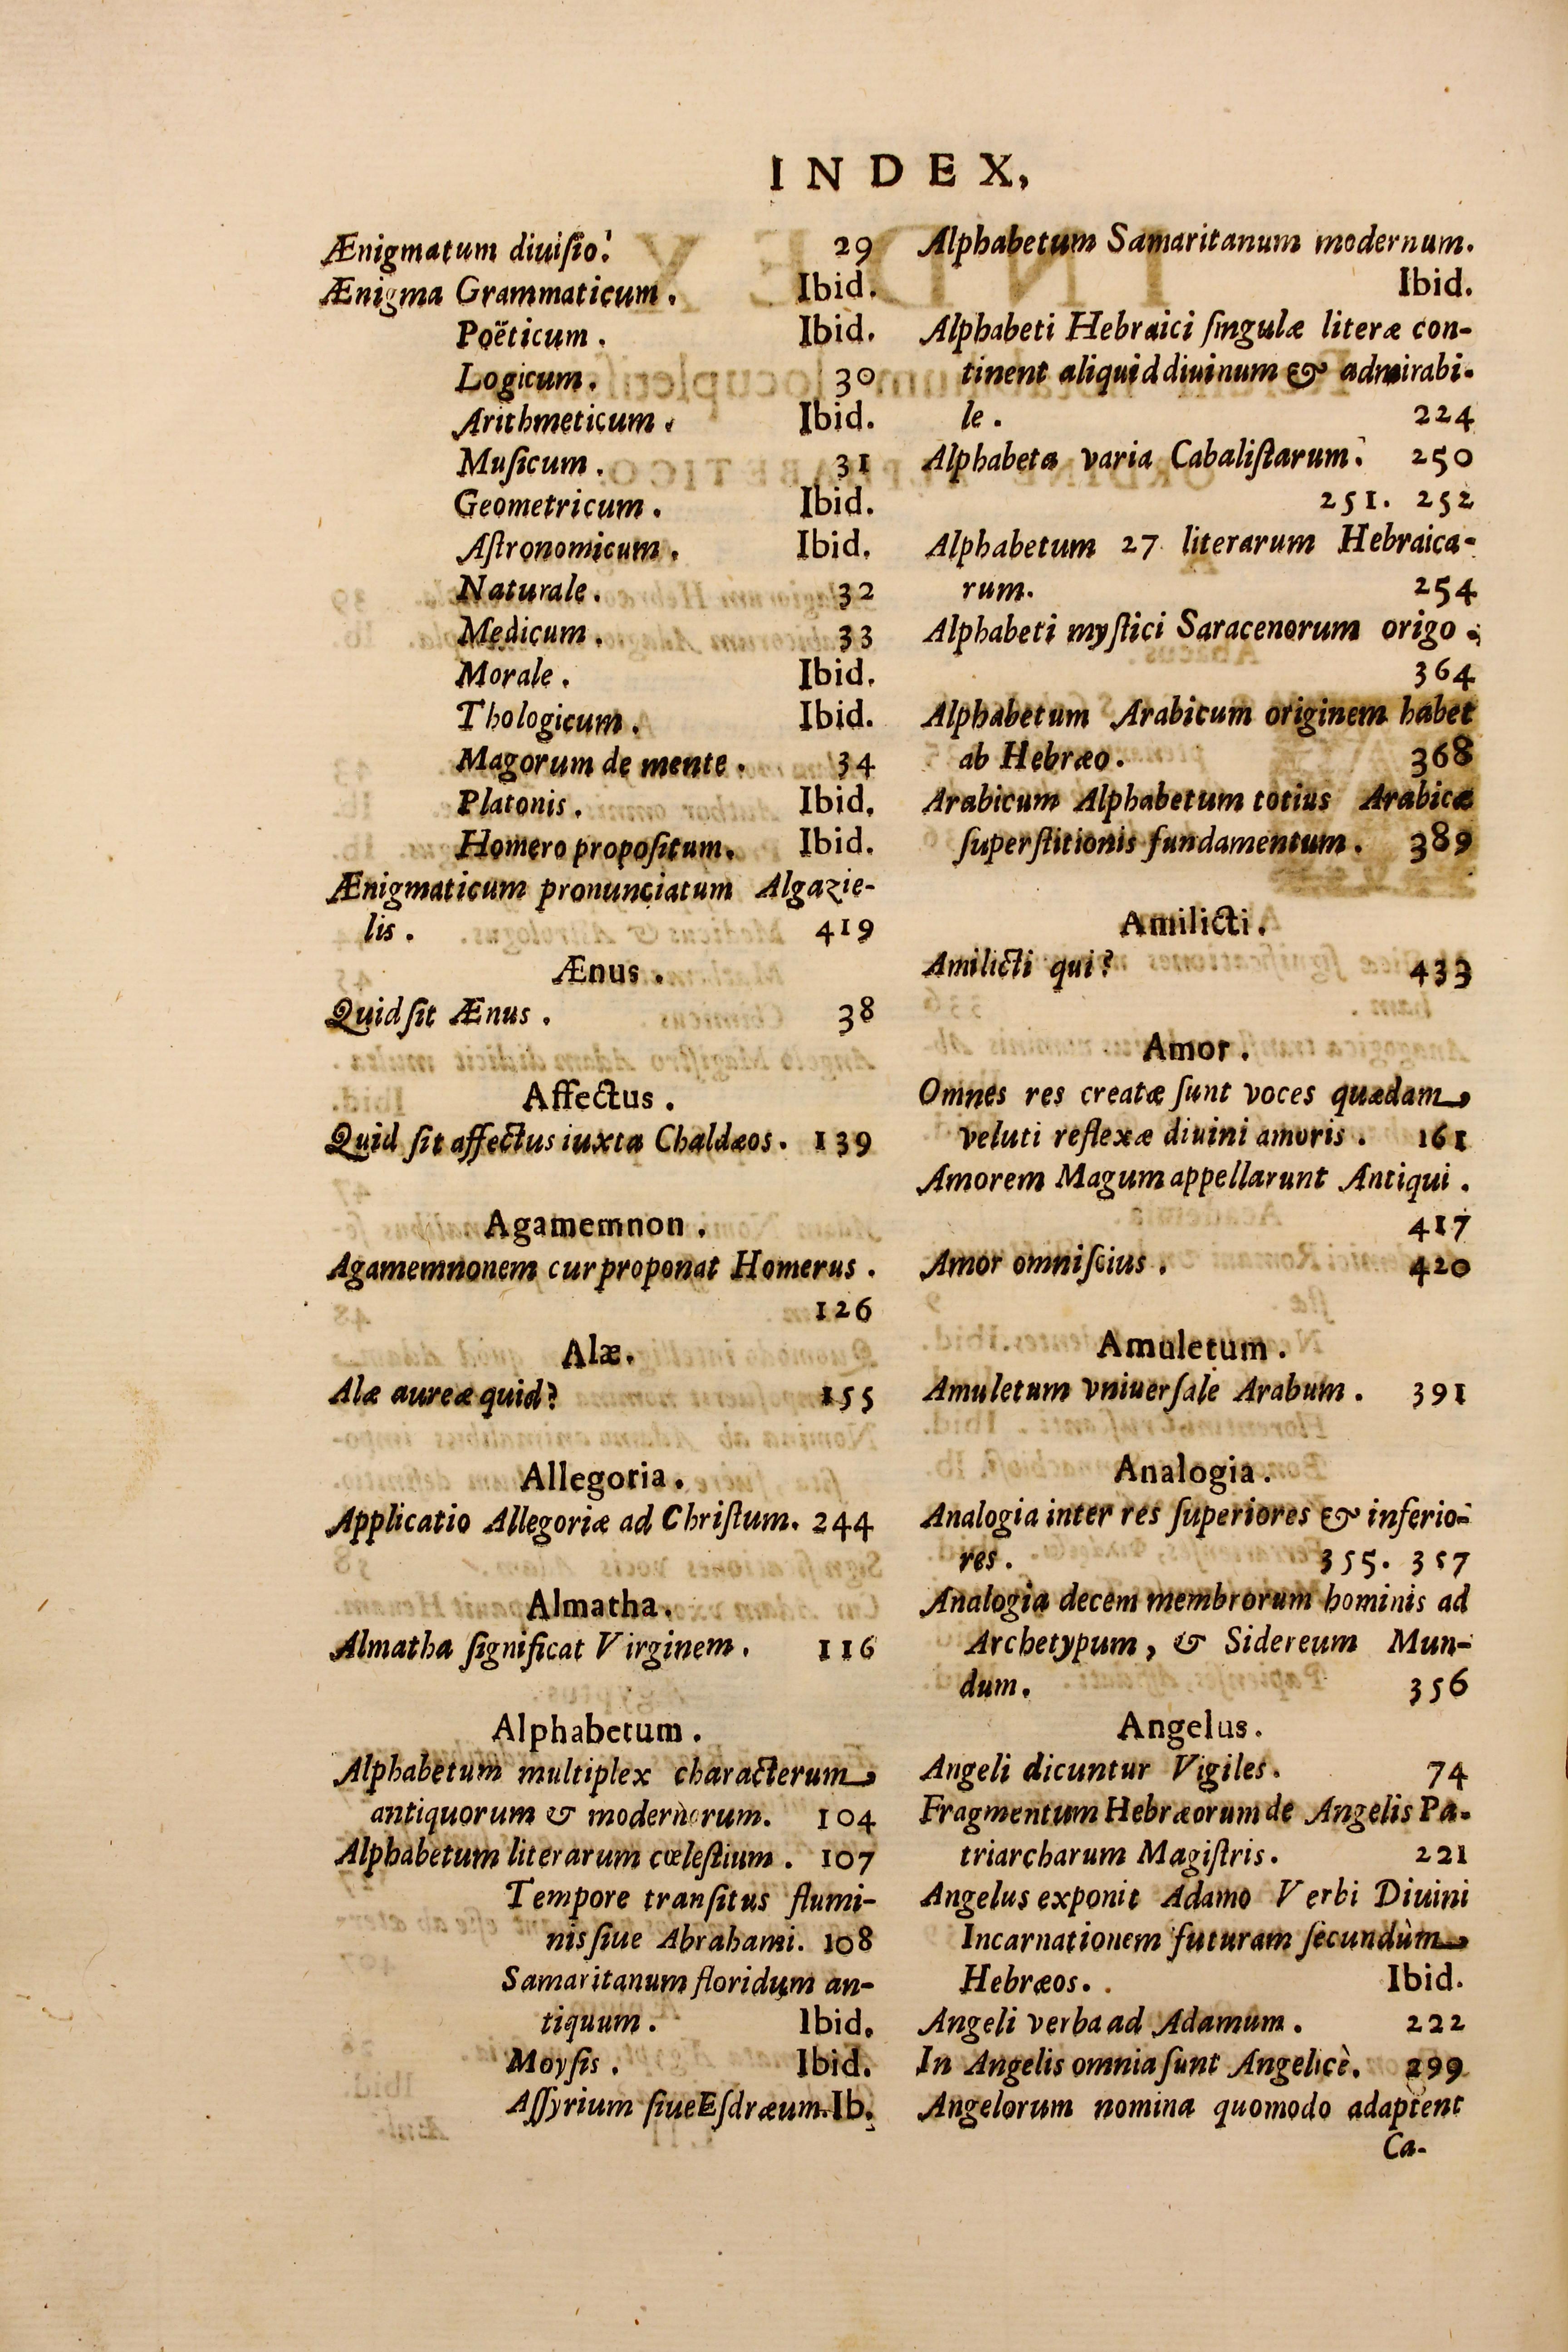 INDEX,
Ænigmatum diuiſio. 29
Ænigma Grammaticum. Ibid.
Poëticum. Ibid.
Logicum. 30
Arithmeticum. Ibid.
Muſicum. 31
Geometricum. Ibid.
Aſtronomicum. Ibid.
Naturale. 32
Medicum. 33
Morale. Ibid.
Thologicum. Ibid.
Magorum de mente. 34
Platonis. Ibid.
Homero propoſitum. Ibid.
Ænigmaticum pronunciatum Algazie-
lis. 419
Ænus.
Quid ſit Ænus. 38
Affectus.
Quid ſit affectus iuxta Chaldæos. 139
Agamemnon.
Agamemnonem cur proponat Homerus.
126
Alæ.
Alæ aureæ quid? 155
Allegoria.
Applicatio Allegoriæ ad Chriſtum. 244
Almatha.
Almatha ſignificat Virginem. 116
Alphabetum.
Alphabetum multiplex characterum
antiquorum & modernorum. 104
Alphabetum literarum cœleſtium. 107
Tempore tranſitus flumi-
nis ſiue Abrahami. 108
Samaritanum floridum an-
tiquum. Ibid.
Moyſis. Ibid.
Aſſyrium ſiue Eſdræum. Ib.
Alphabetum Samaritanum modernum.
Ibid.
Alphabeti Hebraici ſingulæ literæ con-
tinent aliquid diuinum & admirabi-
le. 224
Alphabeta varia Cabaliſtarum. 250
251. 252
Alphabetum 27 literarum Hebraica-
rum. 254
Alphabeti myſtici Saracenorum origo.
364
Alphabetum Arabicum originem habet
ab Hebræo. 368
Arabicum Alphabetum totius Arabicæ
ſuperſtitionis fundamentum. 389
Amilicti.
Amilicti qui? 433
Amor.
Omnes res creatæ ſunt voces quædam
veluti reflexæ diuini amoris. 161
Amorem Magum appellarunt Antiqui.
417
Amor omniſcius. 420
Amuletum.
Amuletum vniuerſale Arabum. 391
Analogia.
Analogia inter res ſuperiores & inferio-
res. 355. 357
Analogia decem membrorum hominis ad
Archetypum, & Sidereum Mun-
dum. 356
Angelus.
Angeli dicuntur Vigiles. 74
Fragmentum Hebræorum de Angelis Pa-
triarcharum Magiſtris. 221
Angelus exponit Adamo Verbi Diuini
Incarnationem futuram ſecundùm
Hebræos. Ibid.
Angeli verba ad Adamum. 222
In Angelis omnia ſunt Angelicè. 299
Angelorum nomina quomodo adaptent
Ca-